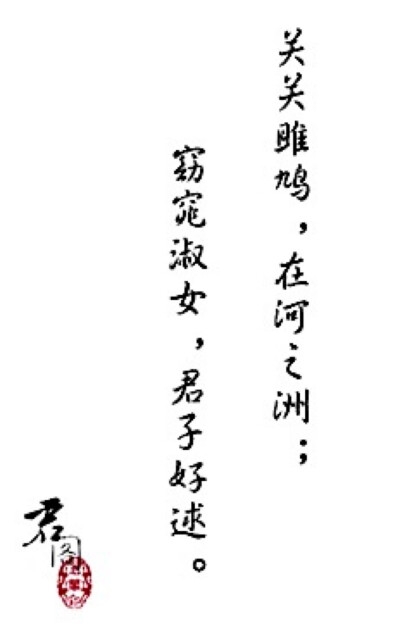 关关雎鸠，在河之洲；
窈窕淑女，君子好逑。
君图